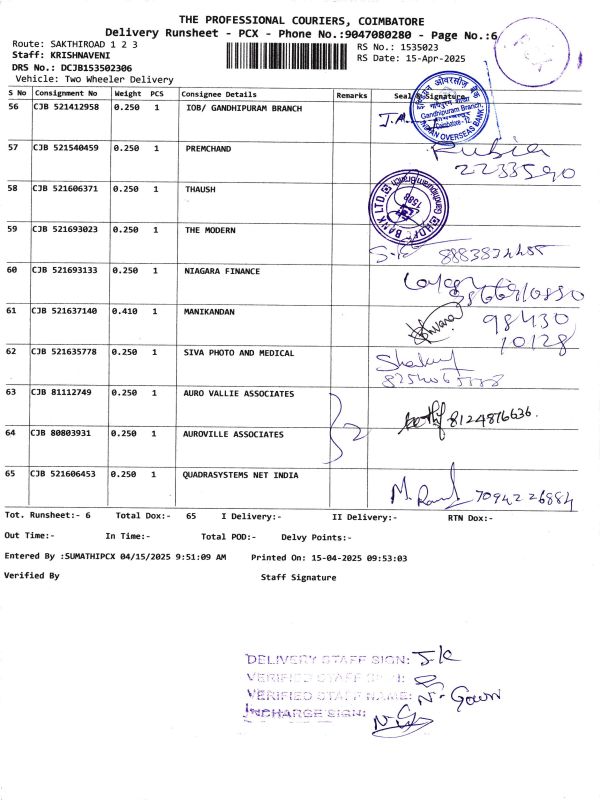 THE PROFESSIONAL COURIERS, COIMBATORE
Delivery Runsheet - PCX - Phone No.:9047080280 - Page No.:6
Route: SAKTHIROAD 1 2 3
RS No.: 1535023
Staff: KRISHNAVENI
RS Date: 15-Apr-2025
DRS No.: DCJB153502306
Vehicle: Two Wheeler Delivery
S No Consignment No Weight PCS Consignee Details Remarks Seal & Signature
56 CJB 521412958 0.250 1 IOB/ GANDHIPURAM BRANCH
Gandhipuram Branch
INDIAN OVERSEAS BANK
57 CJB 521540459 0.250 1 PREMCHAND
Rubia
2233590
58 CJB 521606371 0.250 1 THAUSH
HDFC BANK LTD.
Gandhipuram Branch
59 CJB 521693023 0.250 1 THE MODERN
60 CJB 521693133 0.250 1 NIAGARA FINANCE
61 CJB 521637140 0.410 1 MANIKANDAN
98430
10128
62 CJB 521635778 0.250 1 SIVA PHOTO AND MEDICAL
63 CJB 81112749 0.250 1 AURO VALLIE ASSOCIATES
2
8124876636.
64 CJB 80803931 0.250 1 AUROVILLE ASSOCIATES
65 CJB 521606453 0.250 1 QUADRASYSTEMS NET INDIA
7094226884
Tot. Runsheet:- 6 Total Dox:- 65 I Delivery:- II Delivery:- RTN Dox:-
Out Time:- In Time:- Total POD:- Delvy Points:-
Entered By :SUMATHIPCX 04/15/2025 9:51:09 AM Printed On: 15-04-2025 09:53:03
Verified By Staff Signature
DELIVERY STAFF SIGN: J-K
VERIFIED STAFF SIGN:
VERIFIED STAFF NAME: N-Gowri
INCHARGE SIGN: